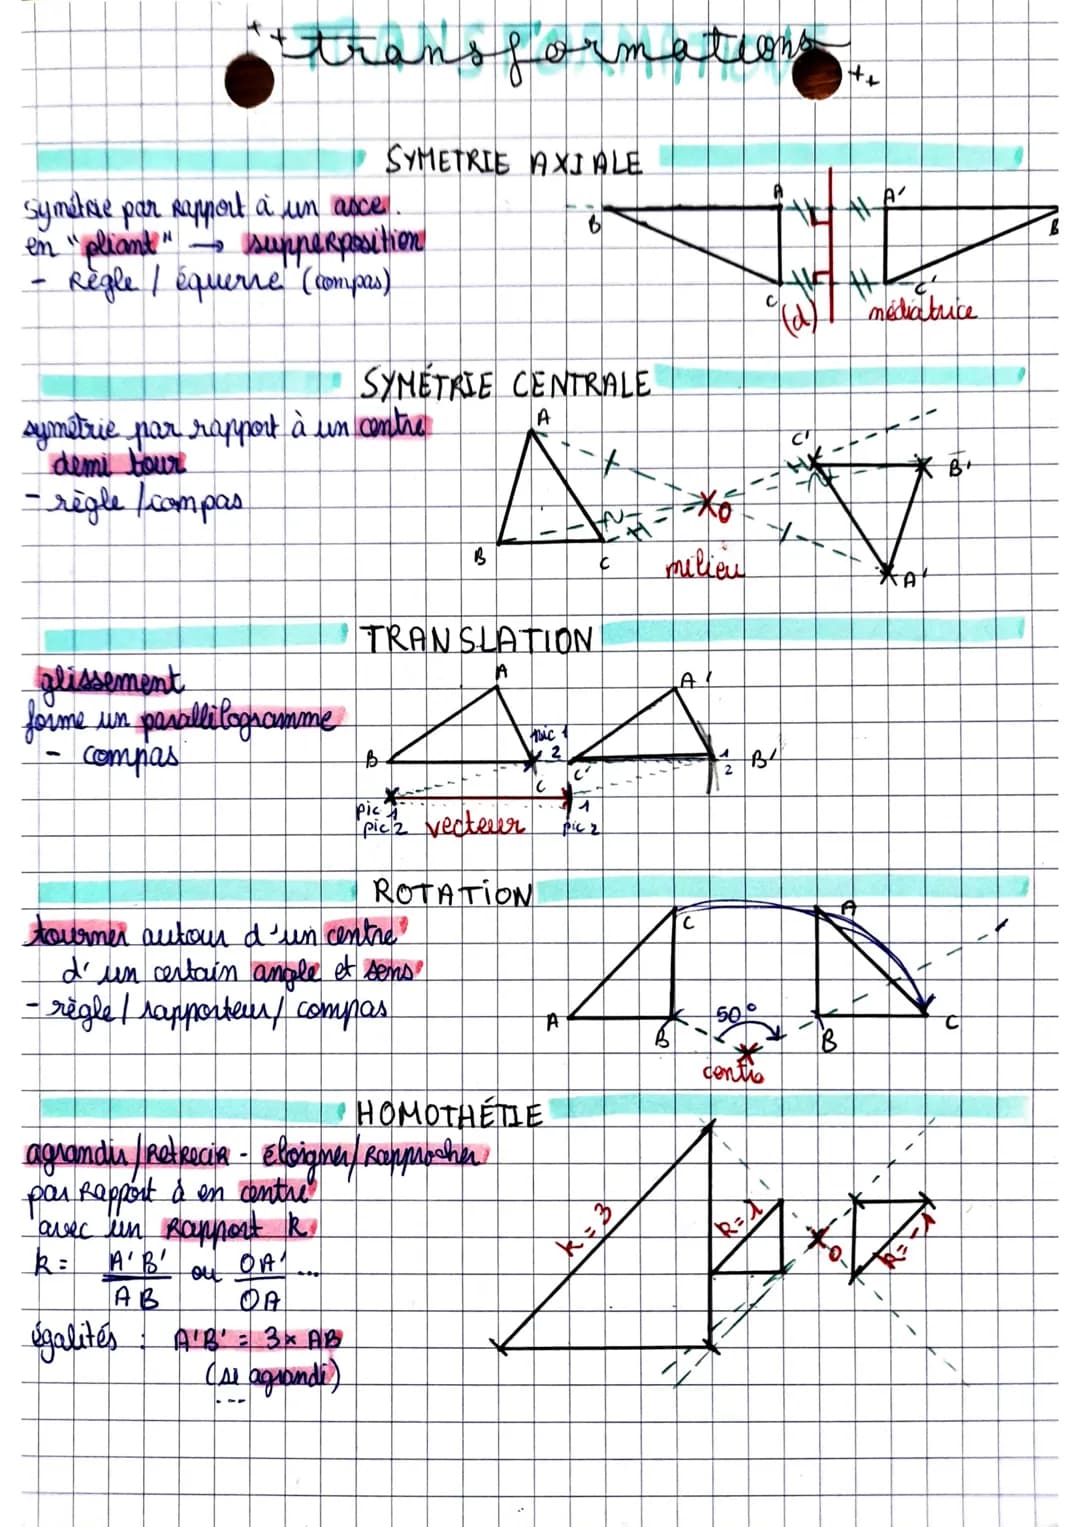 transformations
TRANSFORMATIONS
SYMETRIE AXIALE
Symétrie par rapport à un axe.
en "pliant" → supperposition
- Règle / équerre (compas)
A
A'
B
B
C
C'
(d)
médiatrice
SYMÉTRIE CENTRALE
symétrie par rapport à un centre
demi tour
- règle / compas
A
C'
B'
O
B
C
milieu
A'
TRANSLATION
glissement
forme un parallilogramme
- compas
A
A'
B
pic 1
2
C
C'
1
2
B'
pic 1
pic 2
vecteur
1
pic 2
ROTATION
tourner autour d'un centre
d'un certain angle et sens
- règle / rapporteur / compas
C
A
A
B
50°
B
C
centre
HOMOTHÉTIE
agrandir / Retrecir - éloigner / Rapprocher
par Rapport à en centre
avec un Rapport k
k = A'B' / AB ou OA' / OA ...
égalités : A'B' = 3 x AB
(si agrandi)
---
k = 3
k = 1
O
k = -1